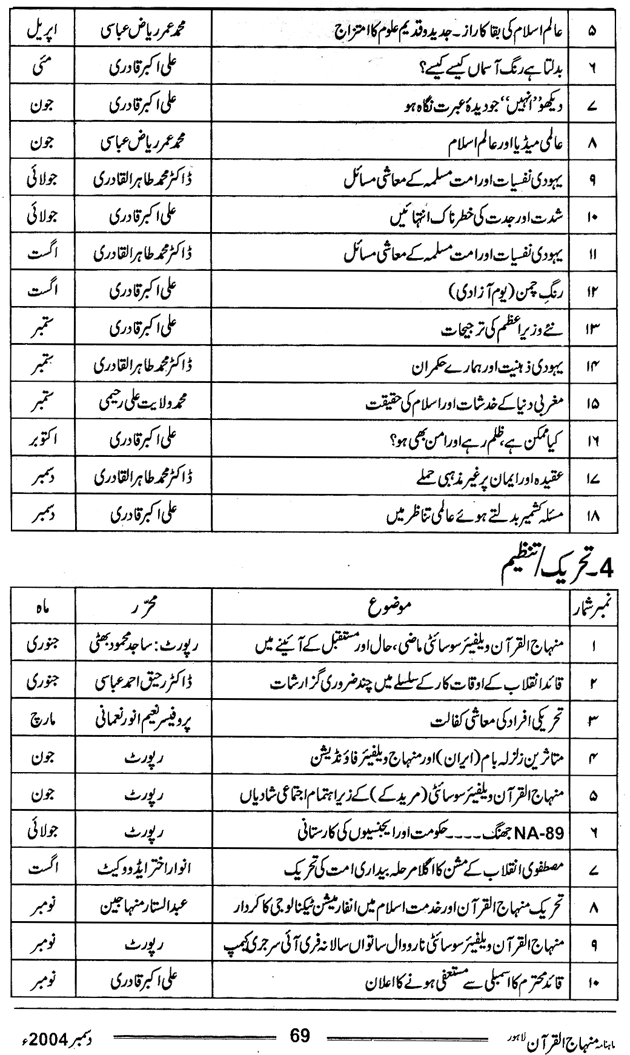 ۵ عالم اسلام کی بقا کا راز۔ جدید و قدیم علوم کا امتزاج محمد عمر ریاض عباسی اپریل
۶ بدلتا ہے رنگ آسماں کیسے کیسے؟ علی اکبر قادری مئی
۷ دیکھو ’’انہیں‘‘ جو دیدۂ عبرت نگاہ ہو علی اکبر قادری جون
۸ عالمی میڈیا اور عالم اسلام محمد عمر ریاض عباسی جون
۹ یہودی نفسیات اور امت مسلمہ کے معاشی مسائل ڈاکٹر محمد طاہر القادری جولائی
۱۰ شدت اور جدت کی خطرناک انتہائیں علی اکبر قادری جولائی
۱۱ یہودی نفسیات اور امت مسلمہ کے معاشی مسائل ڈاکٹر محمد طاہر القادری اگست
۱۲ رنگِ چمن (یوم آزادی) علی اکبر قادری اگست
۱۳ نئے وزیر اعظم کی ترجیحات علی اکبر قادری ستمبر
۱۴ یہودی ذہنیت اور ہمارے حکمران ڈاکٹر محمد طاہر القادری ستمبر
۱۵ مغربی دنیا کے خدشات اور اسلام کی حقیقت محمد ولایت علی رحیمی ستمبر
۱۶ کیا ممکن ہے، ظلم رہے اور امن بھی ہو؟ علی اکبر قادری اکتوبر
۱۷ عقیدہ اور ایمان پر غیر مذہبی حملے ڈاکٹر محمد طاہر القادری دسمبر
۱۸ مسئلہ کشمیر بدلتے ہوئے عالمی تناظر میں علی اکبر قادری دسمبر
4۔ تحریک/تنظیم
نمبر شمار موضوع محرّر ماہ
۱ منہاج القرآن ویلفیئر سوسائٹی ماضی، حال اور مستقبل کے آئینے میں رپورٹ: ساجد محمود بھٹی جنوری
۲ قائد انقلاب کے اوقات کار کے سلسلے میں چند ضروری گزارشات ڈاکٹر رحیق احمد عباسی جنوری
۳ تحریکی افراد کی معاشی کفالت پروفیسر نعیم انور نعمانی مارچ
۴ متاثرین زلزلہ بام (ایران) اور منہاج ویلفیئر فاؤنڈیشن رپورٹ جون
۵ منہاج القرآن ویلفیئر سوسائٹی (مریدکے) کے زیر اہتمام اجتماعی شادیاں رپورٹ جون
۶ NA-89 جھنگ۔۔۔۔ حکومت اور ایجنسیوں کی کارستانی رپورٹ جولائی
۷ مصطفوی انقلاب کے مشن کا اگلا مرحلہ بیداری امت کی تحریک انوار اختر ایڈووکیٹ اگست
۸ تحریک منہاج القرآن اور خدمت اسلام میں انفارمیشن ٹیکنالوجی کا کردار عبدالستار منہاجین نومبر
۹ منہاج القرآن ویلفیئر سوسائٹی نارووال ساتواں سالانہ فری آئی سرجری کیمپ رپورٹ نومبر
۱۰ قائد محترم کا اسمبلی سے مستعفی ہونے کا اعلان علی اکبر قادری نومبر
ماہنامہ منہاج القرآن لاہور 69 دسمبر 2004ء